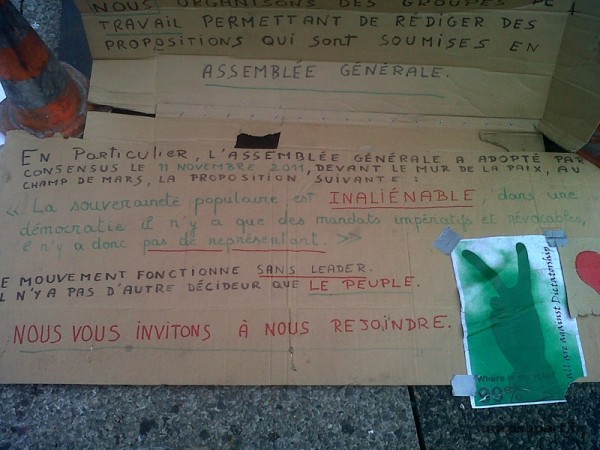 NOUS ORGANISONS DES GROUPES DE
TRAVAIL PERMETTANT DE RÉDIGER DES
PROPOSITIONS QUI SONT SOUMISES EN
ASSEMBLÉE GÉNÉRALE.
EN PARTICULIER, L'ASSEMBLÉE GÉNÉRALE A ADOPTÉ PAR
CONSENSUS LE 11 NOVEMBRE 2011, DEVANT LE MUR DE LA PAIX, AU
CHAMP DE MARS, LA PROPOSITION SUIVANTE :
« La souveraineté populaire est INALIÉNABLE, dans une
démocratie il n'y a que des mandats impératifs et révocables,
il n'y a donc pas de représentant. »
E MOUVEMENT FONCTIONNE SANS LEADER.
L N'Y A PAS D'AUTRE DÉCIDEUR QUE LE PEUPLE.
NOUS VOUS INVITONS À NOUS REJOINDRE.
All are against Dictatorship
99%